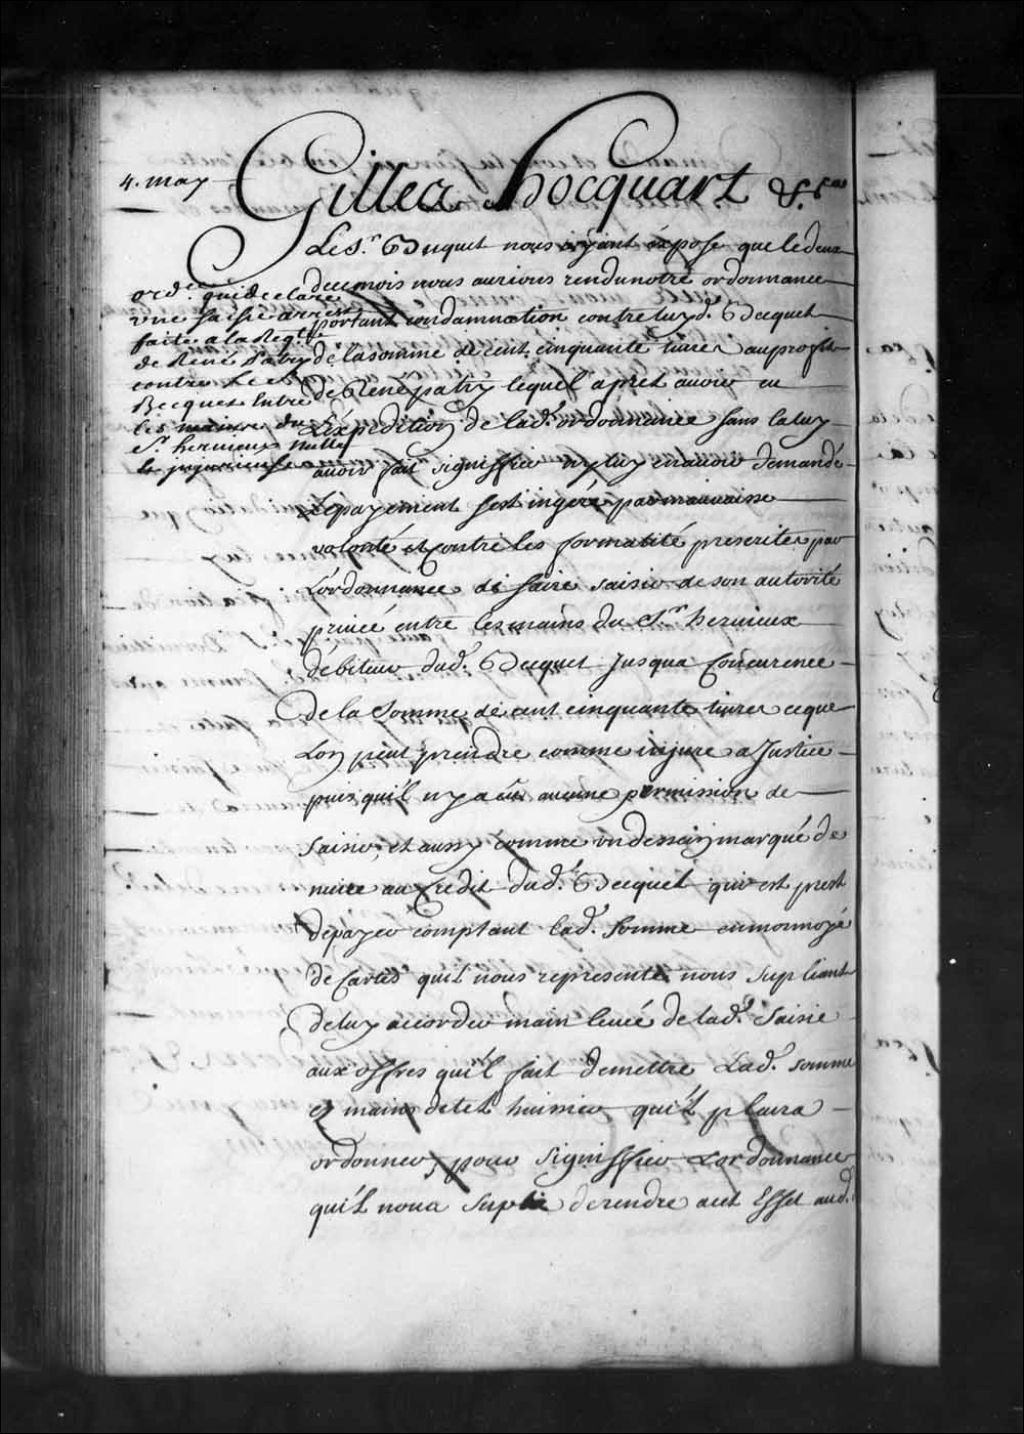 4. may
Gilles hocquart &.ca
Le S.r Becquet nous ayant éxposé que le deux
du ce mois nous aurions rendu notre ordonnance
portant condamnation contre luy d. Becquet
de la somme de cent cinquante livres au profit
de René patry lequel apres avoir eu
L'éxpedition de lad. ordonnance sans la luy
avoir fait signiffier ny luy en avoir demandé
Le payement s'est ingeré par mauvaise
volonté et contre les formalité prescrites par
L'ordonnance de faire saisir de son autorité
privée entre les mains du S.r hervieux
débiteur dud. Becquet Jusqua Concurence
De la Somme de cent cinquante livres ce que
Lon peut prendre comme injure a Justice
puis qu'il n'y a eû aucune permission de
Saisir, et aussy comme un dessein marqué de
nuire au Credit dud. Becquet qui est prest
de payer comptant lad. somme en monnoye
de Cartes qu'il nous represente nous supliant
De luy accorder main levée de lad. Saisie
aux offres qu'il fait de mettre Lad. somme
ez mains de tel huissier qu'il plaira
ordonner, pour signiffier L'ordonnance
qu'il nous suplie de rendre a cet Effet aud.
ord.ce qui declare
une saisie arrest
faite a la Req.te
de René Patry
contre Le S.r
Becquet Entre
les mains du
S.r hervieux nulle
&